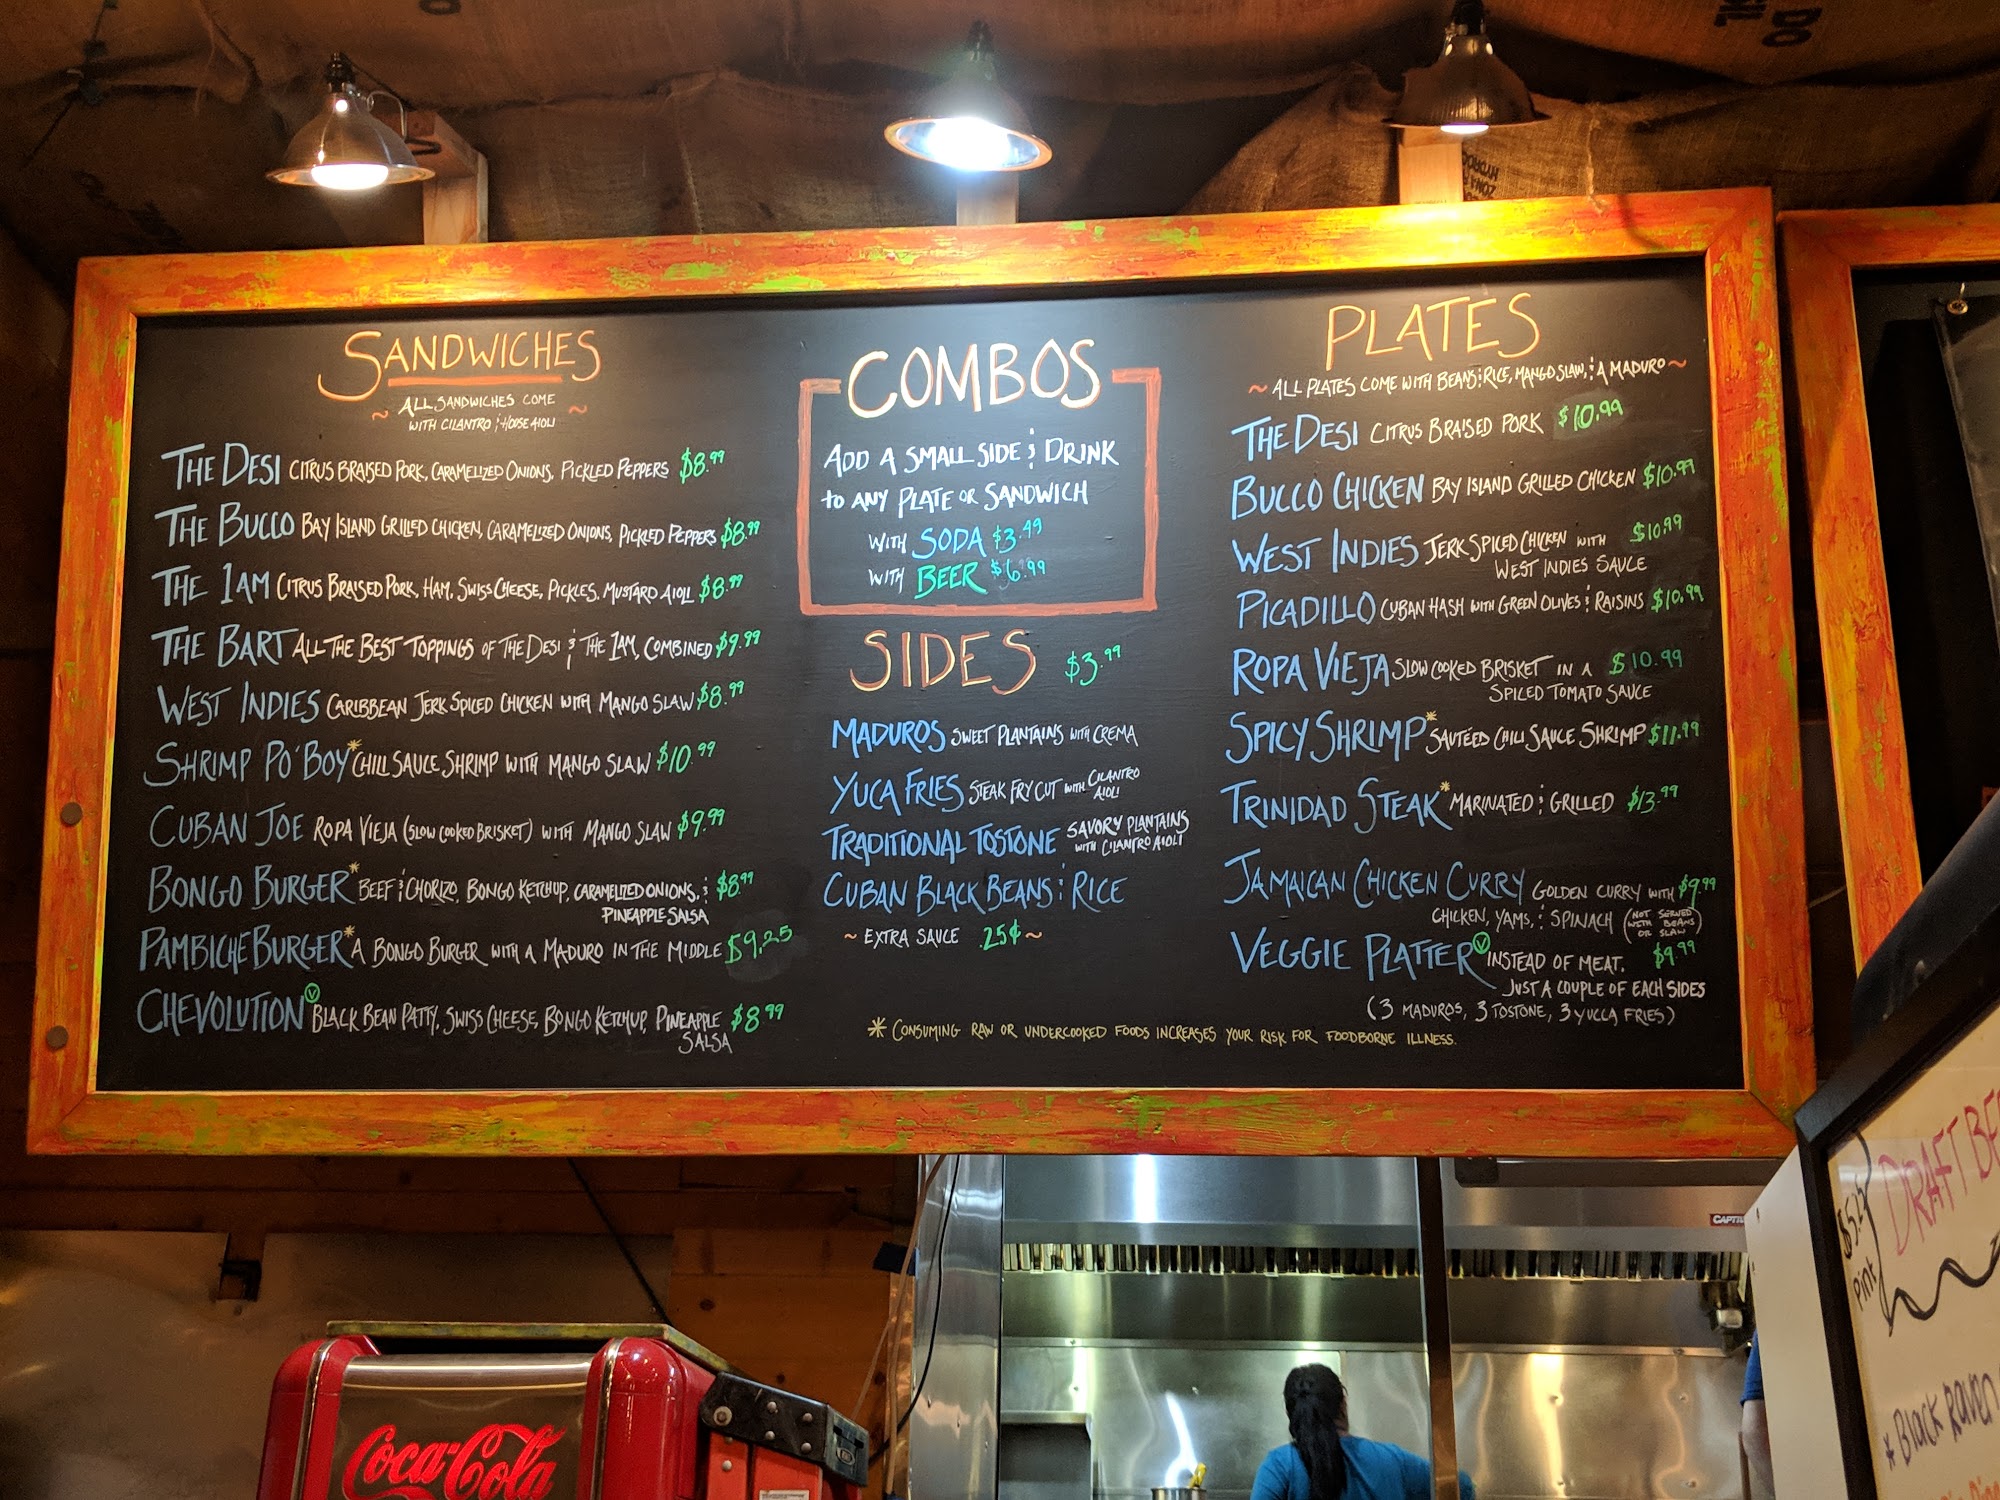 SANDWICHES
~ ALL SANDWICHES COME ~
WITH CILANTRO & HOUSE AIOLI
THE DESI CITRUS BRAISED PORK, CARAMELIZED ONIONS, PICKLED PEPPERS $8.99
THE BUCCO BAY ISLAND GRILLED CHICKEN, CARAMELIZED ONIONS, PICKLED PEPPERS $8.99
THE IAM CITRUS BRAISED PORK, HAM, SWISS CHEESE, PICKLES, MUSTARD AIOLI $8.99
THE BART ALL THE BEST TOPPINGS OF THE DESI & THE IAM, COMBINED $9.99
WEST INDIES CARIBBEAN JERK SPICED CHICKEN WITH MANGO SLAW $8.99
SHRIMP PO'BOY* CHILI SAUCE SHRIMP WITH MANGO SLAW $10.99
CUBAN JOE ROPA VIEJA (SLOW COOKED BRISKET) WITH MANGO SLAW $9.99
BONGO BURGER* BEEF & CHORIZO, BONGO KETCHUP, CARAMELIZED ONIONS, & $8.99
PINEAPPLE SALSA
PAMBICHE BURGER* A BONGO BURGER WITH A MADURO IN THE MIDDLE $9.25
CHEVOLUTION Ⓥ BLACK BEAN PATTY, SWISS CHEESE, BONGO KETCHUP, PINEAPPLE $8.99
SALSA
COMBOS
ADD A SMALL SIDE & DRINK
to ANY PLATE OR SANDWICH
WITH SODA $3.49
WITH BEER $6.99
SIDES $3.99
MADUROS SWEET PLANTAINS WITH CREMA
YUCA FRIES STEAK FRY CUT WITH CILANTRO
AIOLI
TRADITIONAL TOSTONE SAVORY PLANTAINS
WITH CILANTRO AIOLI
CUBAN BLACK BEANS & RICE
~ EXTRA SAUCE .25¢ ~
PLATES
~ ALL PLATES COME WITH BEANS & RICE, MANGO SLAW, & A MADURO ~
THE DESI CITRUS BRAISED PORK $10.99
BUCCO CHICKEN BAY ISLAND GRILLED CHICKEN $10.99
WEST INDIES JERK SPICED CHICKEN WITH $10.99
WEST INDIES SAUCE
PICADILLO CUBAN HASH WITH GREEN OLIVES & RAISINS $10.99
ROPA VIEJA SLOW COOKED BRISKET IN A $10.99
SPICED TOMATO SAUCE
SPICY SHRIMP* SAUTÉED CHILI SAUCE SHRIMP $11.99
TRINIDAD STEAK* MARINATED & GRILLED $13.99
JAMAICAN CHICKEN CURRY GOLDEN CURRY WITH $9.99
CHICKEN, YAMS, & SPINACH (NOT SERVED
WITH BEANS
OR SLAW)
VEGGIE PLATTER Ⓥ INSTEAD OF MEAT, $9.99
JUST A COUPLE OF EACH SIDES
(3 MADUROS, 3 TOSTONE, 3 YUCCA FRIES)
* CONSUMING RAW OR UNDERCOOKED FOODS INCREASES YOUR RISK FOR FOODBORNE ILLNESS.
Coca-Cola
DRAFT BE
Pint
* Black Raven